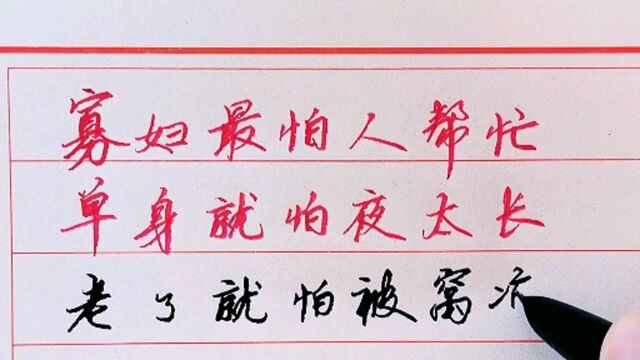 寡妇最怕人帮忙
单身就怕夜太长
老了就怕被窝凉